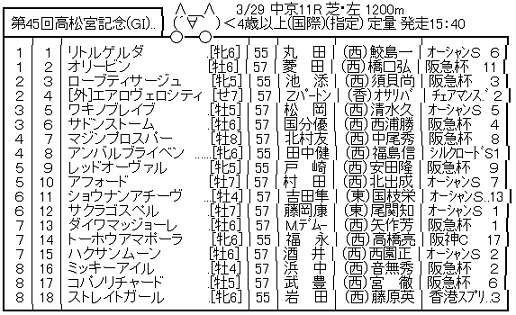 第45回高松宮記念(GI)..
∧ ∧ 3/29 中京11R 芝・左 1200m
(´∀`) <4歳以上(国際)(指定) 定量 発走15:40
1 1 リトルゲルダ [牝6] 55 丸田 (西)鮫島一 オーシャンS 6
1 2 オリービン [牡6] 57 菱田 (西)橋口弘 阪急杯 11
2 3 ローブティサージュ [牝5] 55 池添 (西)須貝尚 阪急杯 3
2 4 [外]エアロヴェロシティ [せ7] 57 Zパートン (香)オサリバ チェアマンズ. 2
3 5 ワキノブレイブ [牡5] 57 松岡 (西)清水久 オーシャンS 5
3 6 サドンストーム [牡6] 57 国分優 (西)西浦勝 阪急杯 4
4 7 マジンプロスパー [牡8] 57 北村友 (西)中尾秀 阪急杯 8
4 8 アンバルブライベン ..[牝6] 55 田中健 (西)福島信 シルクロードS1
5 9 レッドオーヴァル [牝5] 55 戸崎 (西)安田隆 阪急杯 9
5 10 アフォード [牡7] 57 村田 (西)北出成 オーシャンS 7
6 11 ショウナンアチーヴ ..[牡4] 57 吉田隼 (東)国枝栄 オーシャンS..13
6 12 サクラゴスペル [牡7] 57 藤岡康 (東)尾関知 オーシャンS 1
7 13 ダイワマッジョーレ [牡6] 57 Mデム― (西)矢作芳 阪急杯 1
7 14 トーホウアマポーラ [牝6] 55 福永 (西)高橋亮 阪神C 17
7 15 ハクサンムーン [牡6] 57 酒井 (西)西園正 オーシャンS 2
8 16 ミッキーアイル [牡4] 57 浜中 (西)音無秀 阪急杯 2
8 17 コパノリチャード [牡5] 57 武豊 (西)宮徹 阪急杯 6
8 18 ストレイトガール [牝6] 55 岩田 (西)藤原英 香港スプリ..3